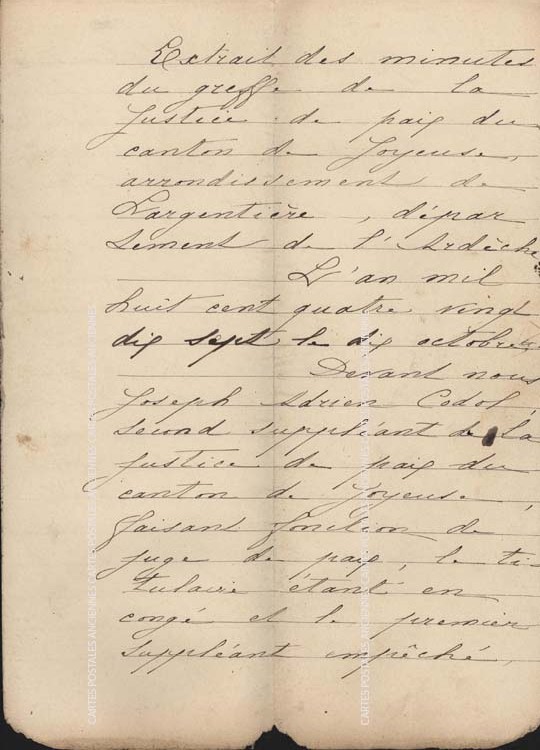 Extrait des minutes
du greffe de la
Justice de paix du
canton de Joyeuse,
arrondissement de
Largentière, dépar
tement de l'Ardèche
L'an mil
huit cent quatre vingt
dix sept le dix octobre
Devant nous
Joseph Adrien Codol,
second suppléant de la
Justice de paix du
canton de Joyeuse,
faisant fonction de
juge de paix, le ti-
tulaire étant en
congé et le premier
suppléant empêché,
CARTES POSTALES ANCIENNES CARTES POSTALES ANCIENNES CARTES POSTALES ANCIENNES
CARTES POSTALES ANCIENNES CARTES POSTALES ANCIENNES CARTES POSTALES ANCIENNES